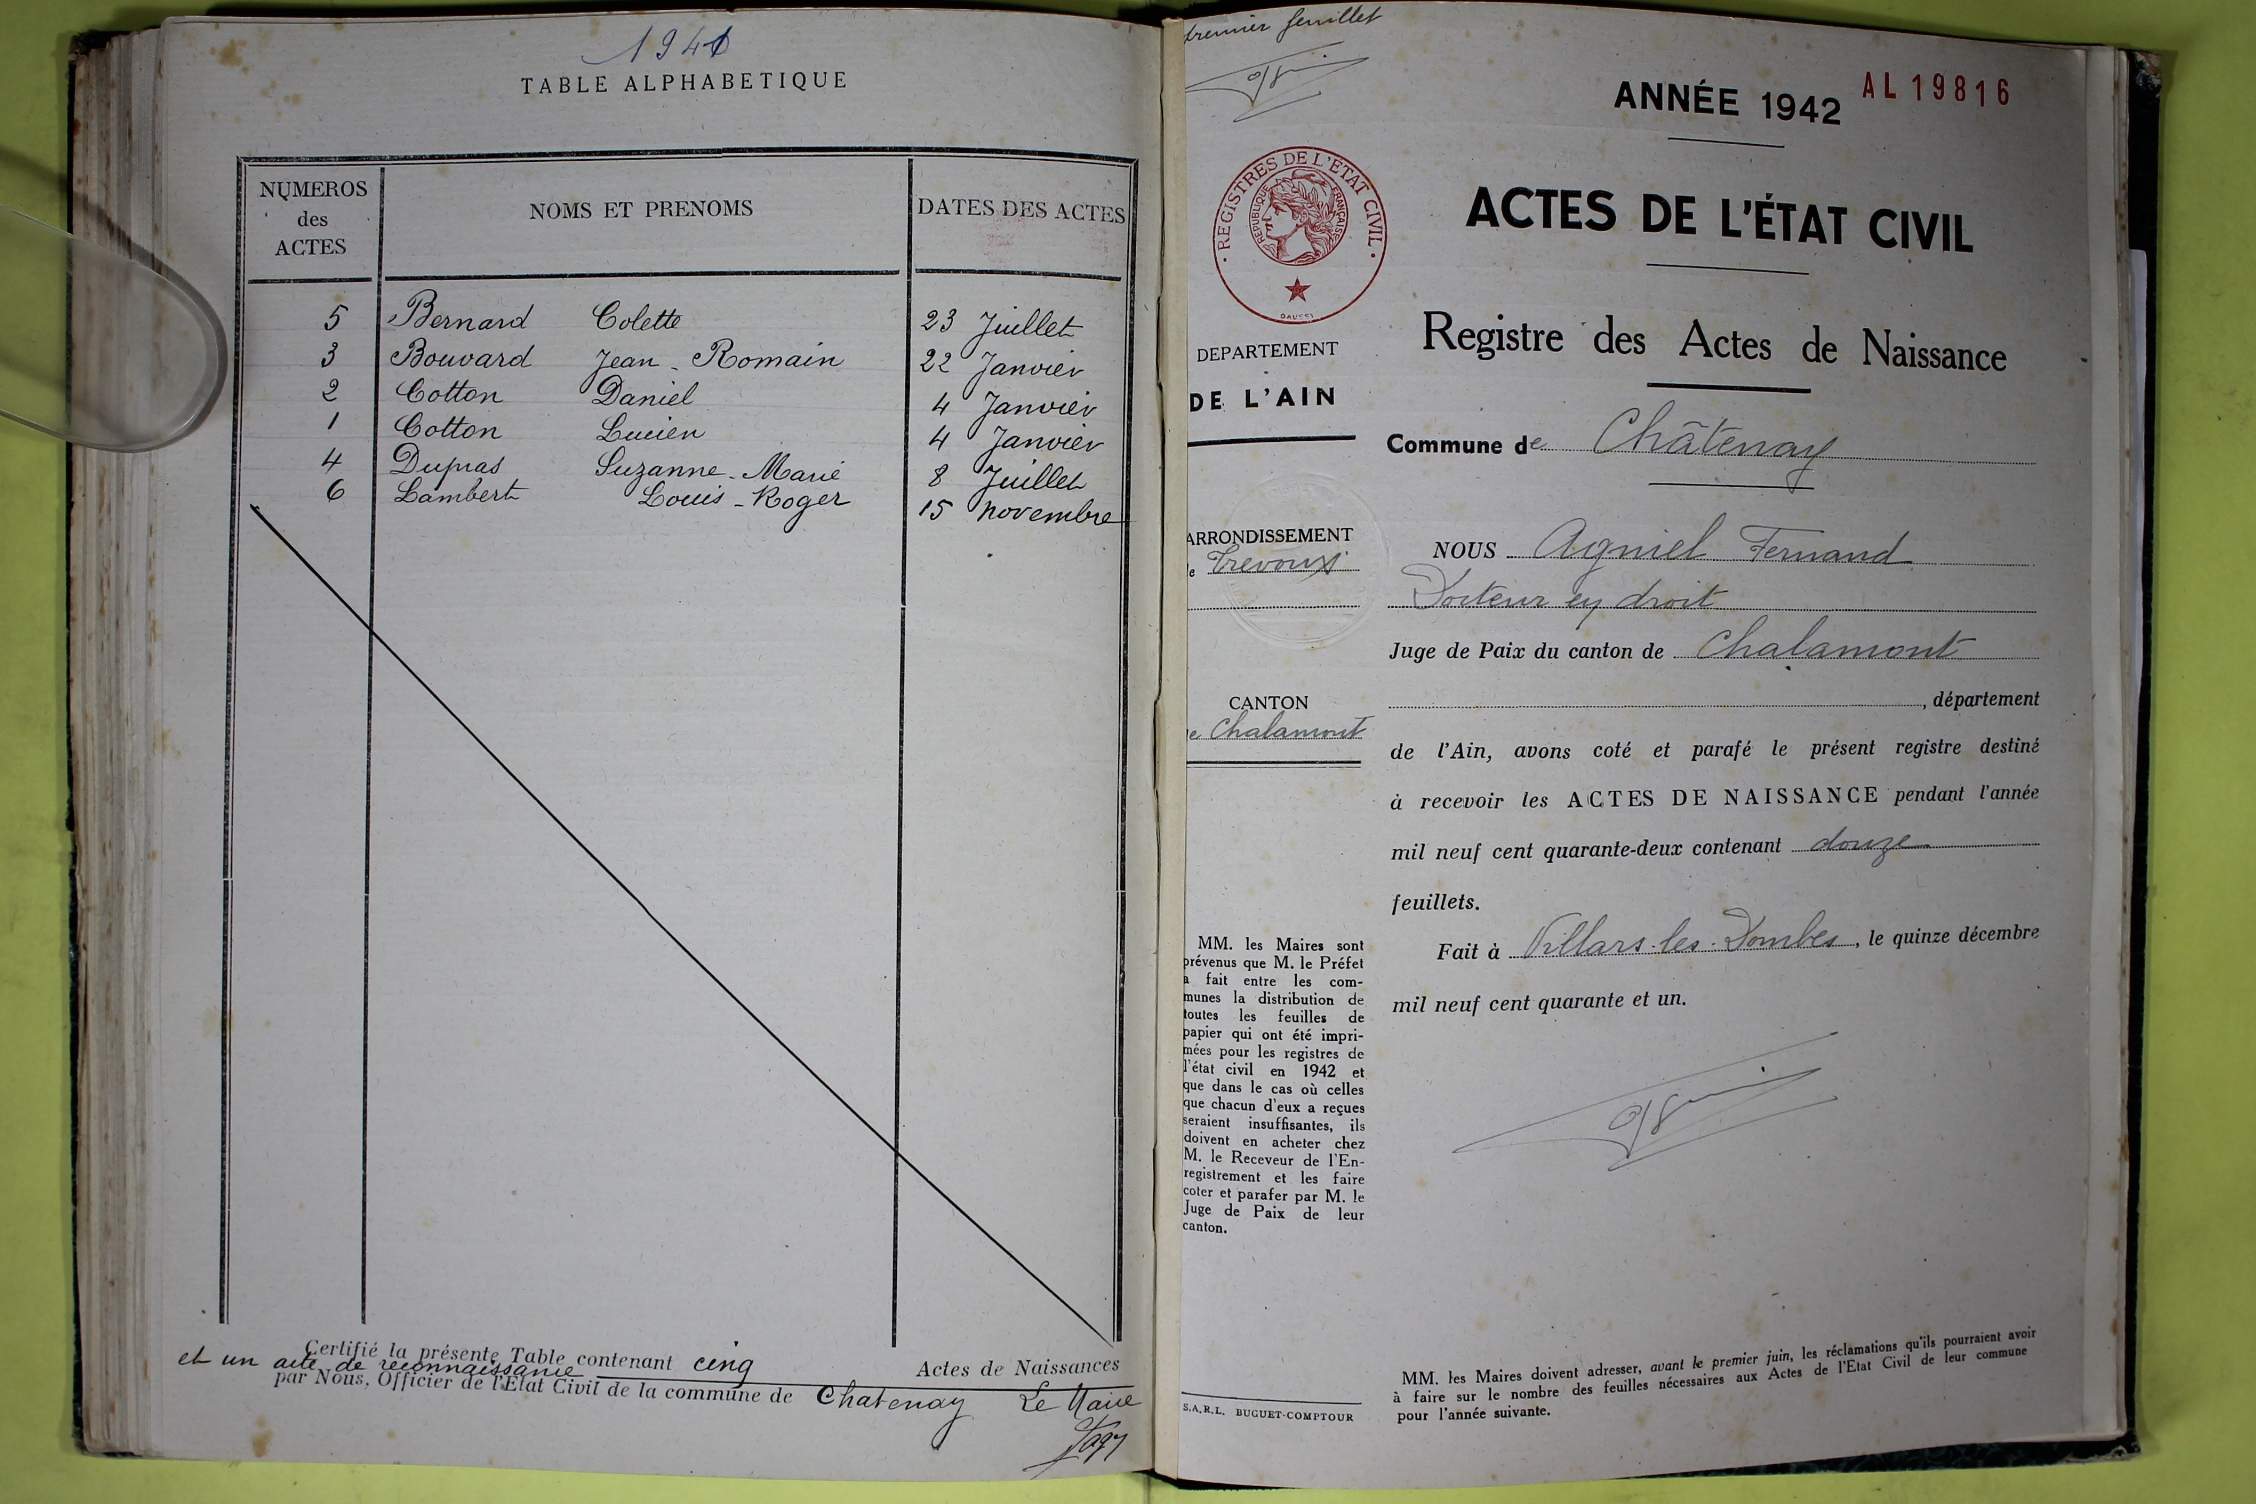 1941
TABLE ALPHABETIQUE
NUMEROS des ACTES
NOMS ET PRENOMS
DATES DES ACTES
5 Bernard Colette 23 Juillet
3 Bouvard Jean - Romain 22 Janvier
2 Cotton Daniel 4 Janvier
1 Cotton Lucien 4 Janvier
4 Dupras Suzanne - Marie 8 Juillet
6 Lambert Louis - Roger 15 novembre
Certifié la présente Table contenant cinq Actes de Naissances
et un acte de reconnaissance
par Nous, Officier de l'Etat Civil de la commune de Chatenay Le Maire
premier feuillet
REGISTRES DE L'ETAT CIVIL
REPUBLIQUE FRANÇAISE
DEPARTEMENT
DE L'AIN
ARRONDISSEMENT
de Trevoux
CANTON
de Chalamont
MM. les Maires sont
prévenus que M. le Préfet
a fait entre les com-
munes la distribution de
toutes les feuilles de
papier qui ont été impri-
mées pour les registres de
l'état civil en 1942 et
que dans le cas où celles
que chacun d'eux a reçues
seraient insuffisantes, ils
doivent en acheter chez
M. le Receveur de l'En-
registrement et les faire
coter et parafer par M. le
Juge de Paix de leur
canton.
S.A.R.L. BUGUET-COMPTOUR
ANNÉE 1942
AL 19816
ACTES DE L'ÉTAT CIVIL
Registre des Actes de Naissance
Commune de Châtenay
NOUS Agniel Fernand
Docteur en droit
Juge de Paix du canton de Chalamont
, département
de l'Ain, avons coté et parafé le présent registre destiné
à recevoir les ACTES DE NAISSANCE pendant l'année
mil neuf cent quarante-deux contenant douze
feuillets.
Fait à Villars-les-Dombes, le quinze décembre
mil neuf cent quarante et un.
MM. les Maires doivent adresser, avant le premier juin, les réclamations qu'ils pourraient avoir
à faire sur le nombre des feuilles nécessaires aux Actes de l'Etat Civil de leur commune
pour l'année suivante.